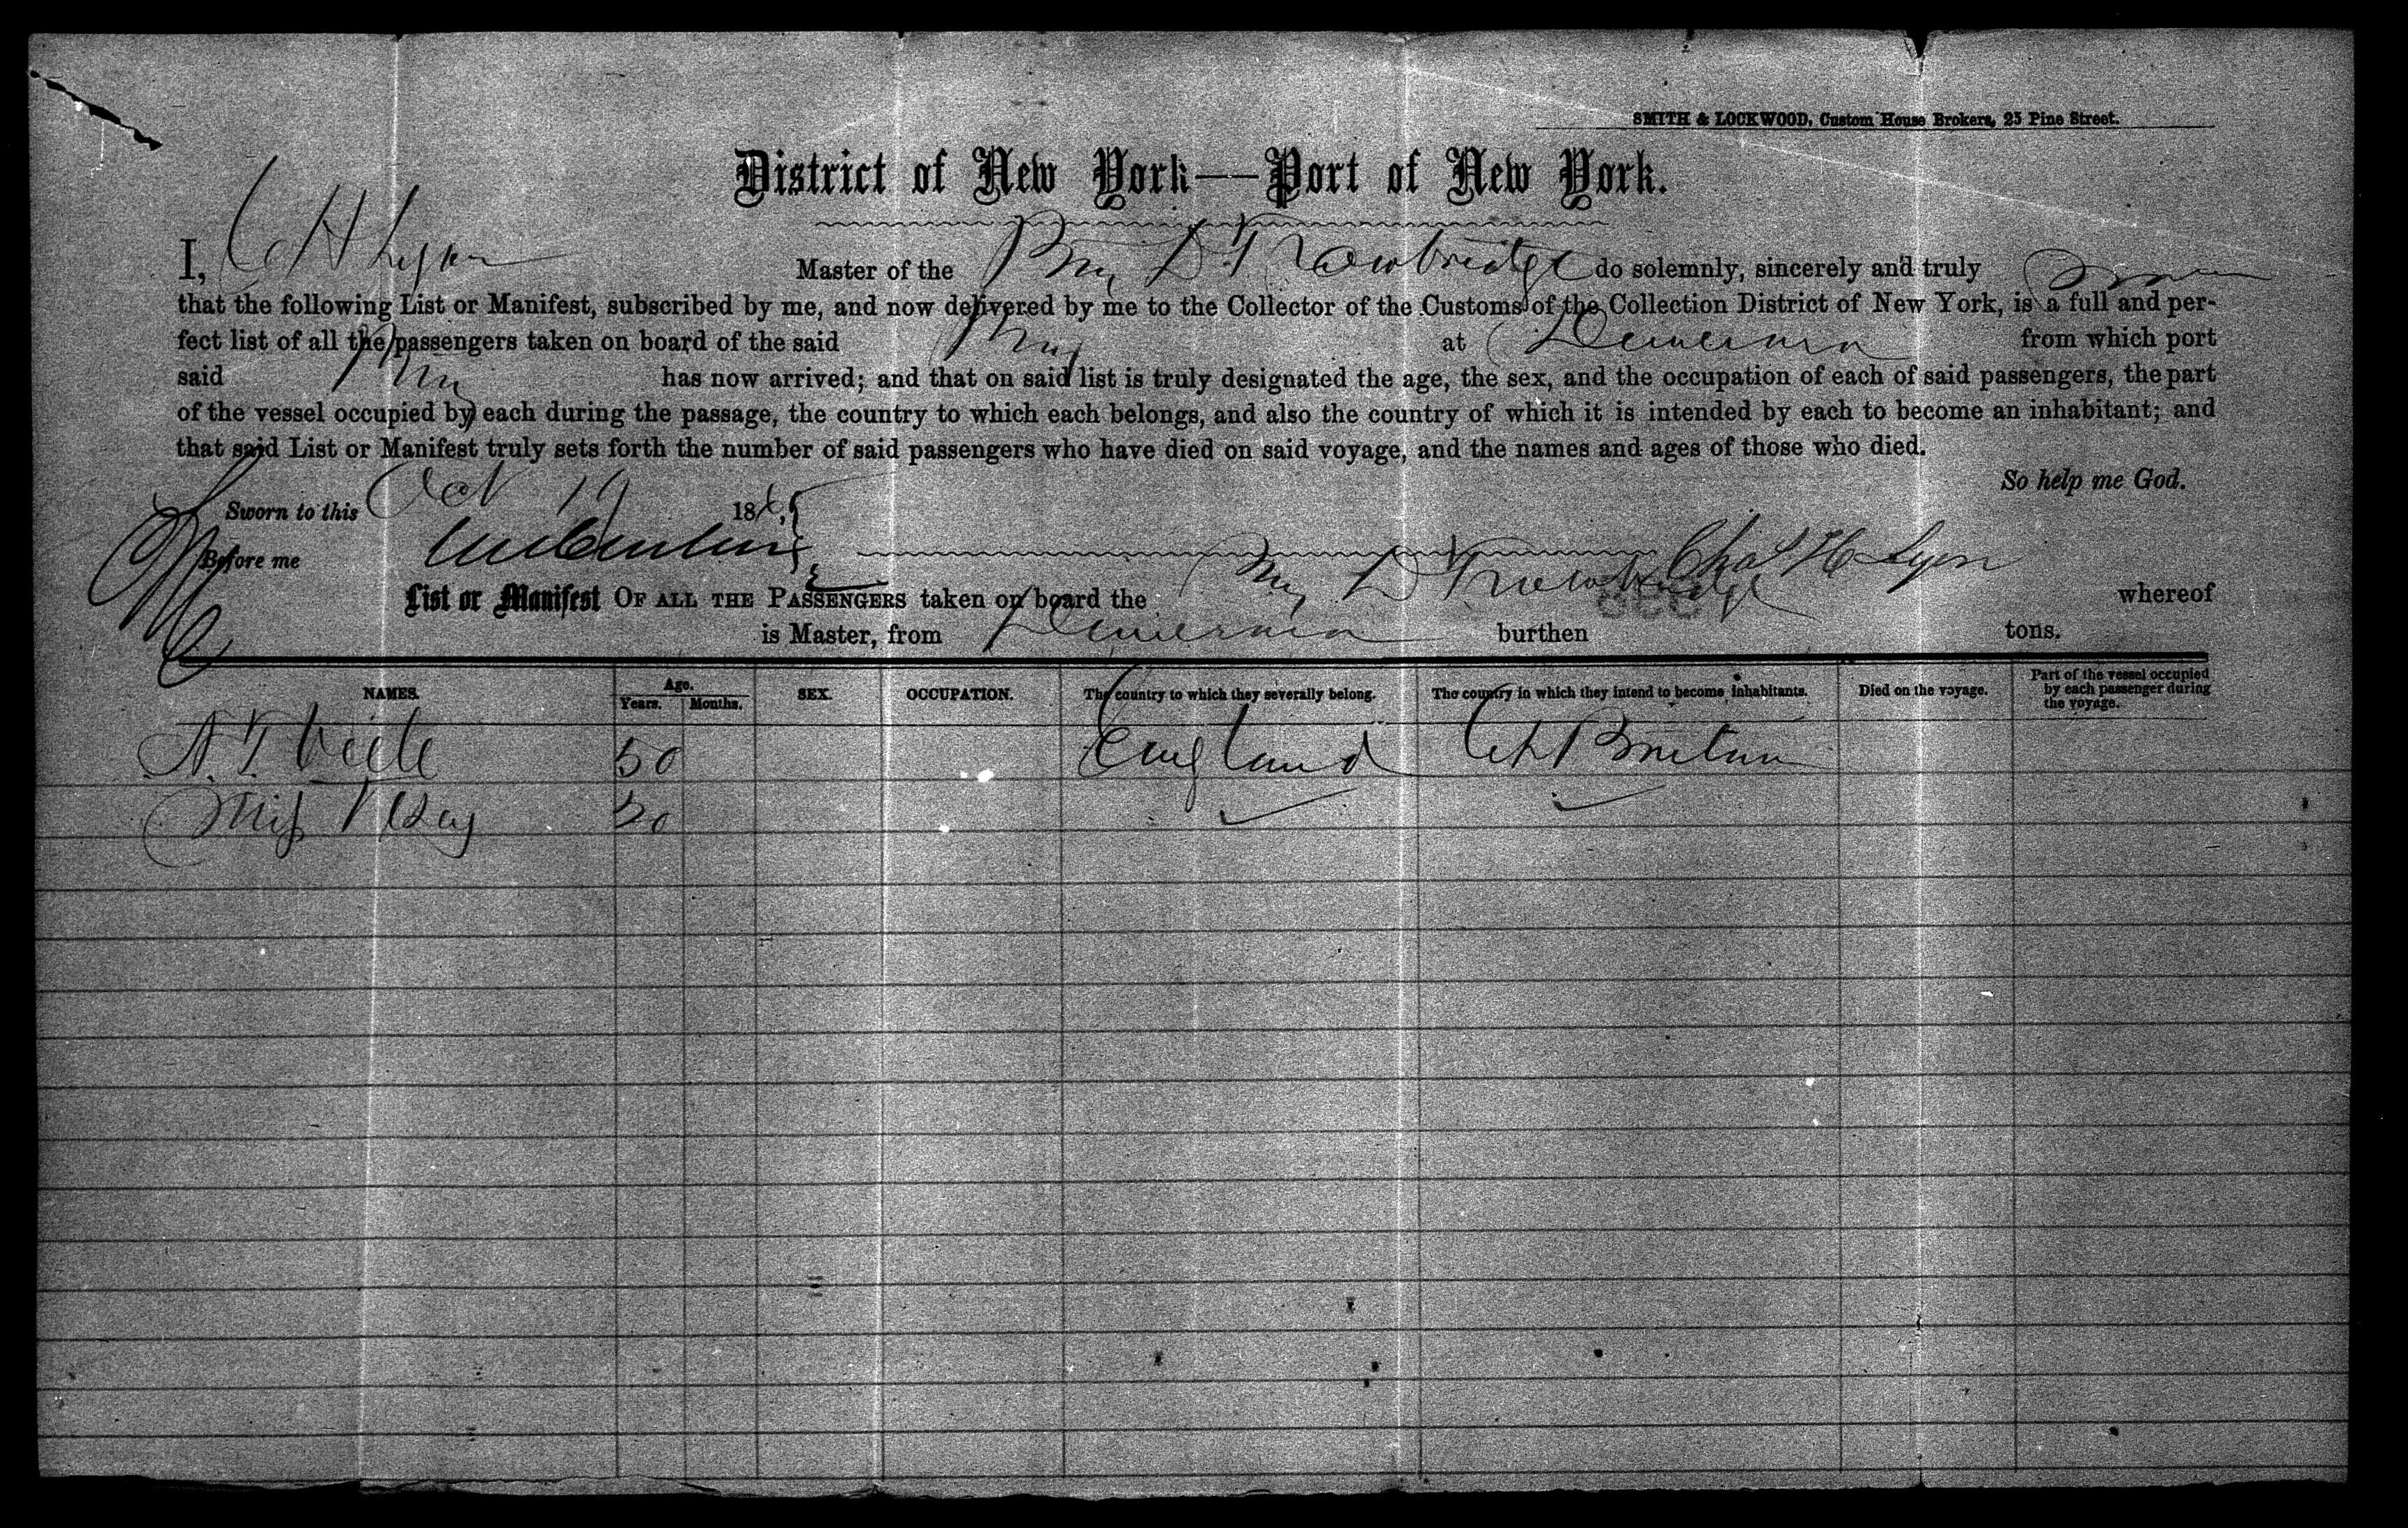 SMITH & LOCKWOOD, Custom House Brokers, 25 Pine Street.
District of New York—Port of New York.
I, C H Lyon Master of the Brig D Trowbridge do solemnly, sincerely and truly swear
that the following List or Manifest, subscribed by me, and now delivered by me to the Collector of the Customs of the Collection District of New York, is a full and per-
fect list of all the passengers taken on board of the said Brig at Demerara from which port
said Brig has now arrived; and that on said list is truly designated the age, the sex, and the occupation of each of said passengers, the part
of the vessel occupied by each during the passage, the country to which each belongs, and also the country of which it is intended by each to become an inhabitant; and
that said List or Manifest truly sets forth the number of said passengers who have died on said voyage, and the names and ages of those who died.
So help me God.
Sworn to this Oct 19 1865
Before me Chas H Lyon
List or Manifest OF ALL THE PASSENGERS taken on board the Brig D Trowbridge whereof
is Master, from Demerara burthen tons.
NAMES. Age. Years. Months. SEX. OCCUPATION. The country to which they severally belong. The country in which they intend to become inhabitants. Died on the voyage. Part of the vessel occupied by each passenger during the voyage.
A. T. 50 England Gt Britain
Miss 20